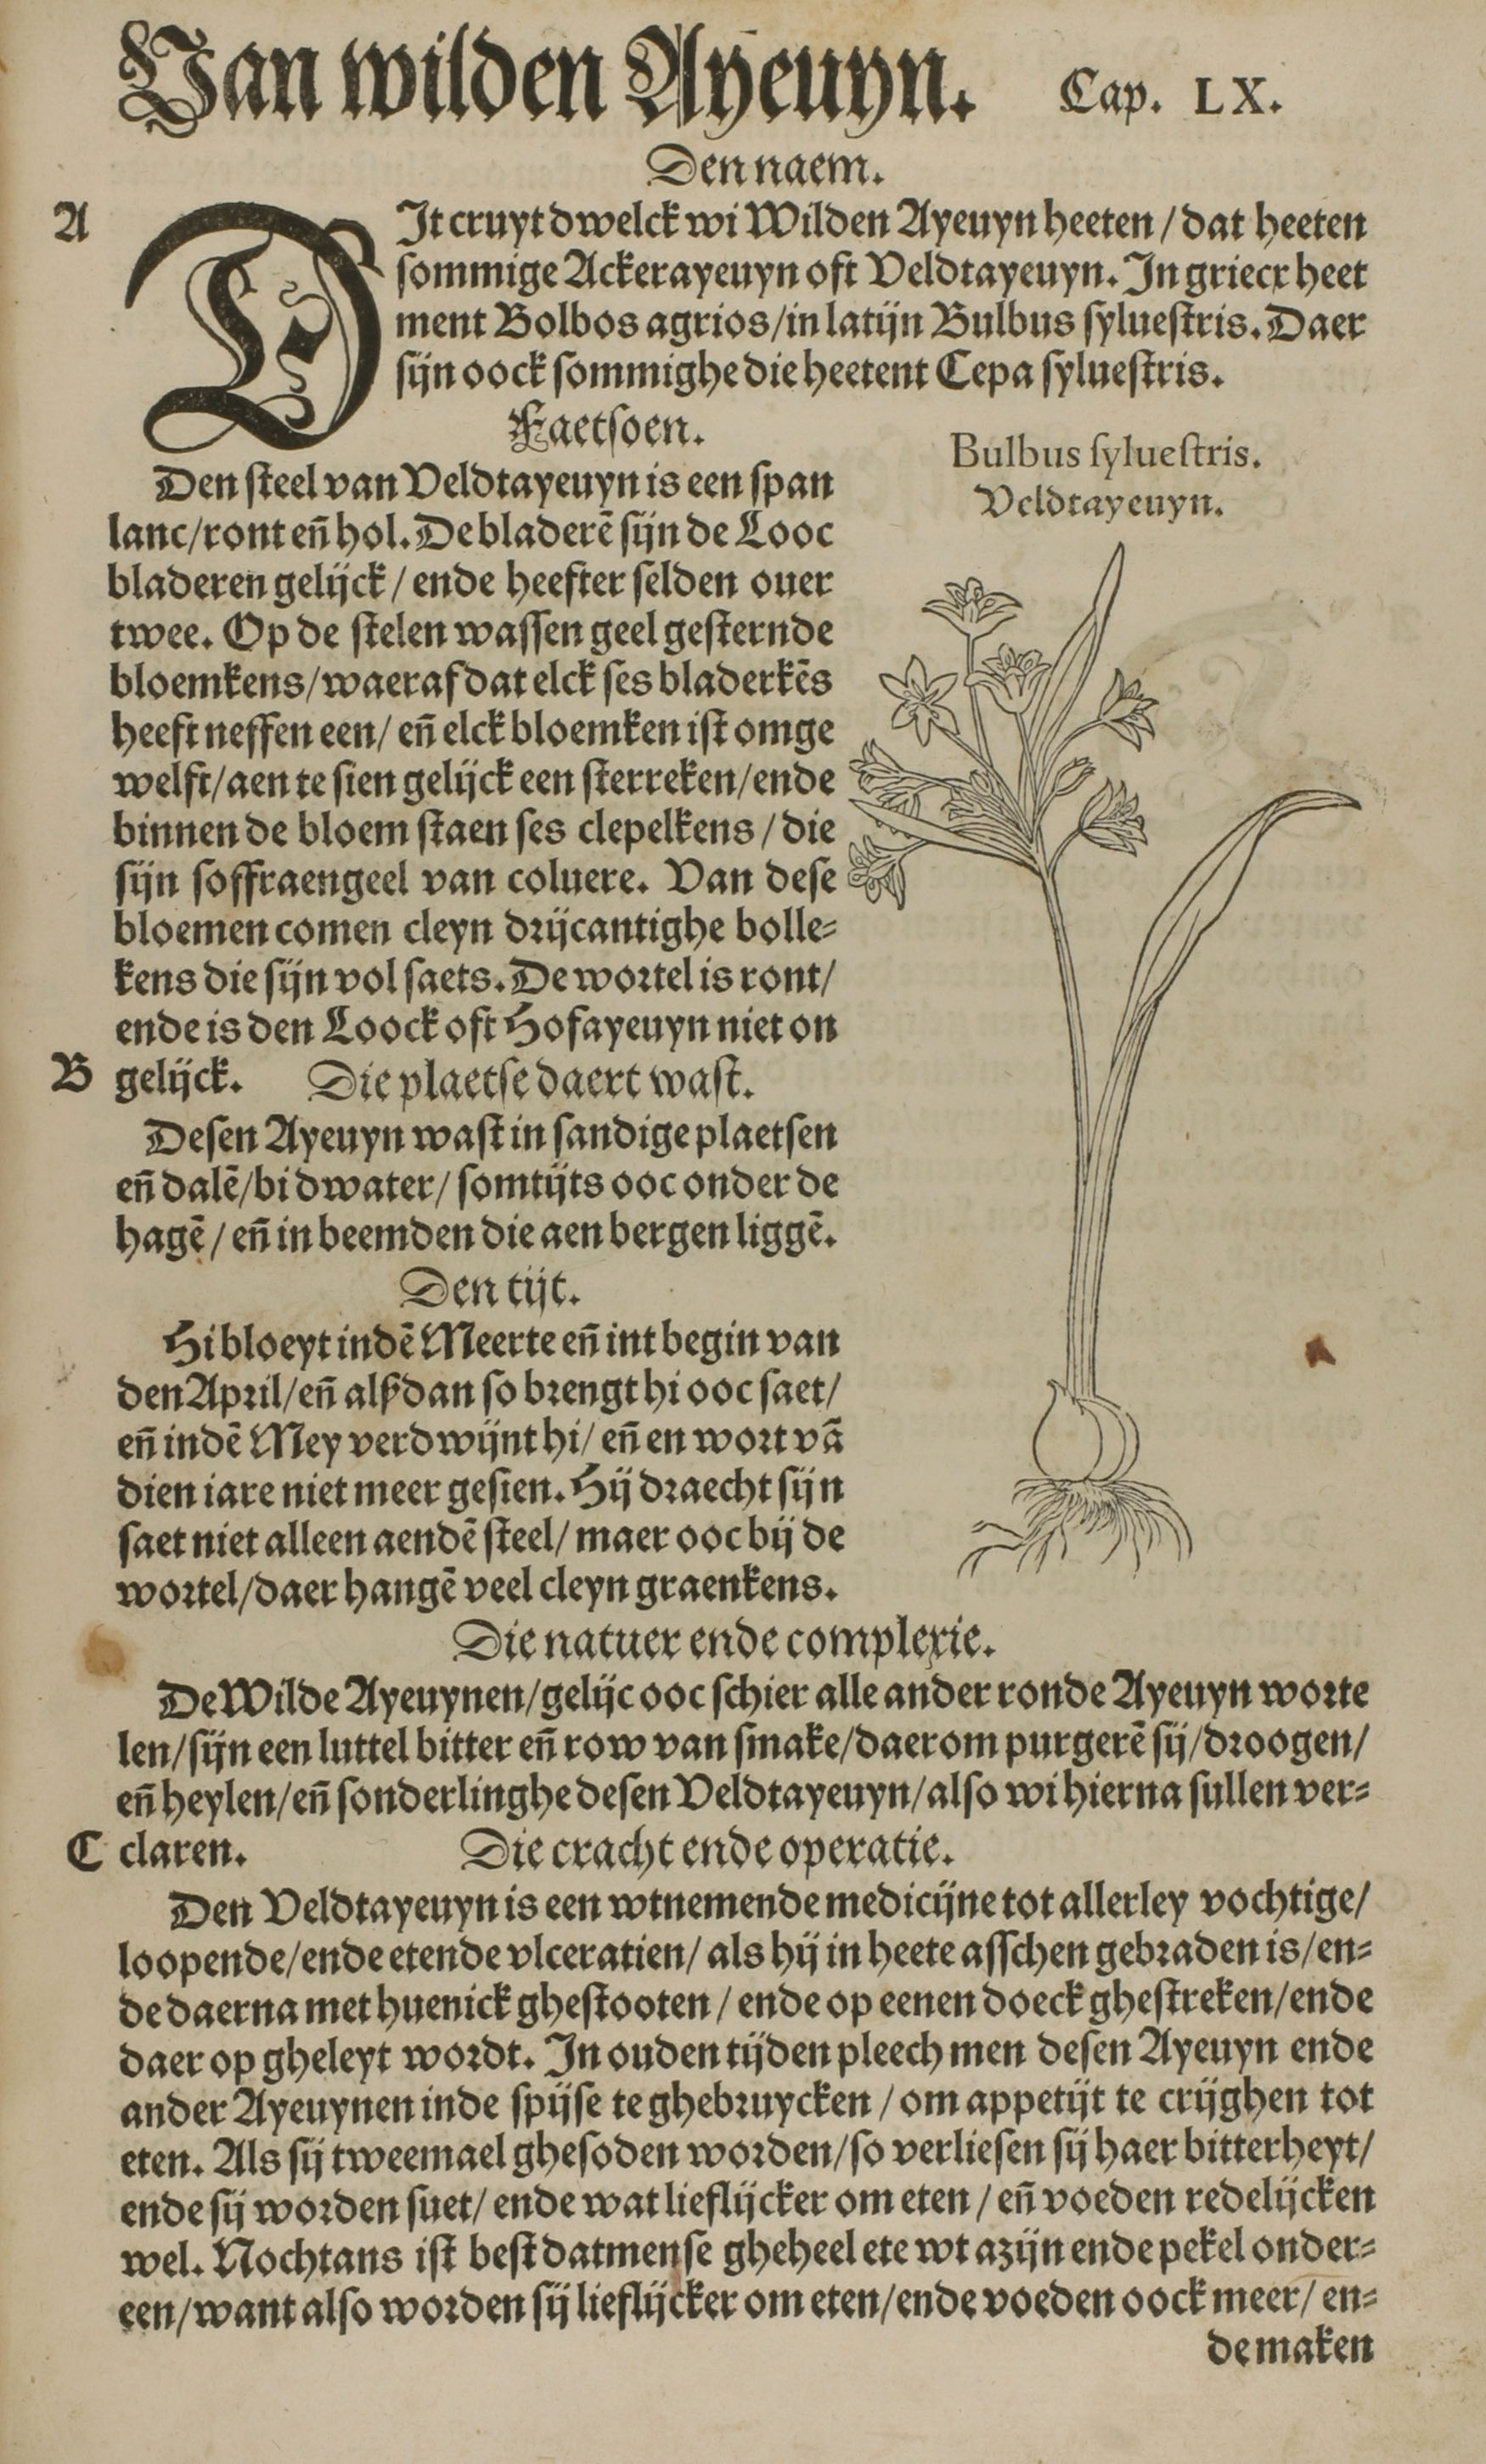 Van wilden Ayeuyn. Cap. LX.
Den naem.
A
DIt cruyt dwelck wi Wilden Ayeuyn heeten / dat heeten
sommige Ackerayeuyn oft Veldtayeuyn. In griecx heet
ment Bolbos agrios/in latijn Bulbus sylueſtris. Daer
sijn oock sommighe die heetent Cepa sylueſtris.
Faetsoen.
Bulbus sylueſtris.
Veldtayeuyn.
Den ſteel van Veldtayeuyn is een ſpan
lanc/ront eñ hol. De bladerē ſijn de Looc
bladeren gelijck / ende heefter ſelden ouer
twee. Op de ſtelen waſſen geel geſternde
bloemkens/waer af dat elck ſes bladerkēs
heeft neffen een/ eñ elck bloemken iſt omge
welft/aen te ſien gelijck een ſterreken/ende
binnen de bloem ſtaen ſes clepelkens / die
ſijn ſoffraengeel van coluere. Van deſe
bloemen comen cleyn drijcantighe bolle⸗
kens die ſijn vol ſaets. De wortel is ront/
ende is den Loock oft Hofayeuyn niet on
B gelijck. Die plaetſe daert waſt.
Deſen Ayeuyn waſt in ſandige plaetſen
eñ dalē/bi dwater/ ſomtijts ooc onder de
hagē / eñ in beemden die aen bergen liggē.
Den tijt.
Hi bloeyt indē Meerte eñ int begin van
den April/eñ alſdan ſo brengt hi ooc ſaet/
eñ indē Mey verdwijnt hi/ eñ en wort vā
dien iare niet meer geſien. Hij draecht ſijn
ſaet niet alleen aendē ſteel/ maer ooc bij de
wortel/daer hangē veel cleyn graenkens.
Die natuer ende complexie.
De Wilde Ayeuynen/gelijc ooc ſchier alle ander ronde Ayeuyn worte
len/ſijn een luttel bitter eñ row van ſmake/daerom purgerē ſij/droogen/
eñ heylen/eñ ſonderlinghe deſen Veldtayeuyn/alſo wi hierna ſullen ver⸗
C claren. Die cracht ende operatie.
Den Veldtayeuyn is een wtnemende medicijne tot allerley vochtige/
loopende/ende etende vlceratien/ als hij in heete aſſchen gebraden is/en⸗
de daerna met huenick gheſtooten / ende op eenen doeck gheſtreken/ende
daer op gheleyt wordt. In ouden tijden pleech men deſen Ayeuyn ende
ander Ayeuynen inde ſpijſe te ghebruycken / om appetijt te crijghen tot
eten. Als ſij tweemael gheſoden worden/ſo verlieſen ſij haer bitterheyt/
ende ſij worden ſuet/ ende wat lieflijcker om eten / eñ voeden redelijcken
wel. Nochtans iſt beſt datmenſe gheheel ete wt azijn ende pekel onder⸗
een/want alſo worden ſij lieflijcker om eten/ende voeden oock meer/ en⸗
de maken